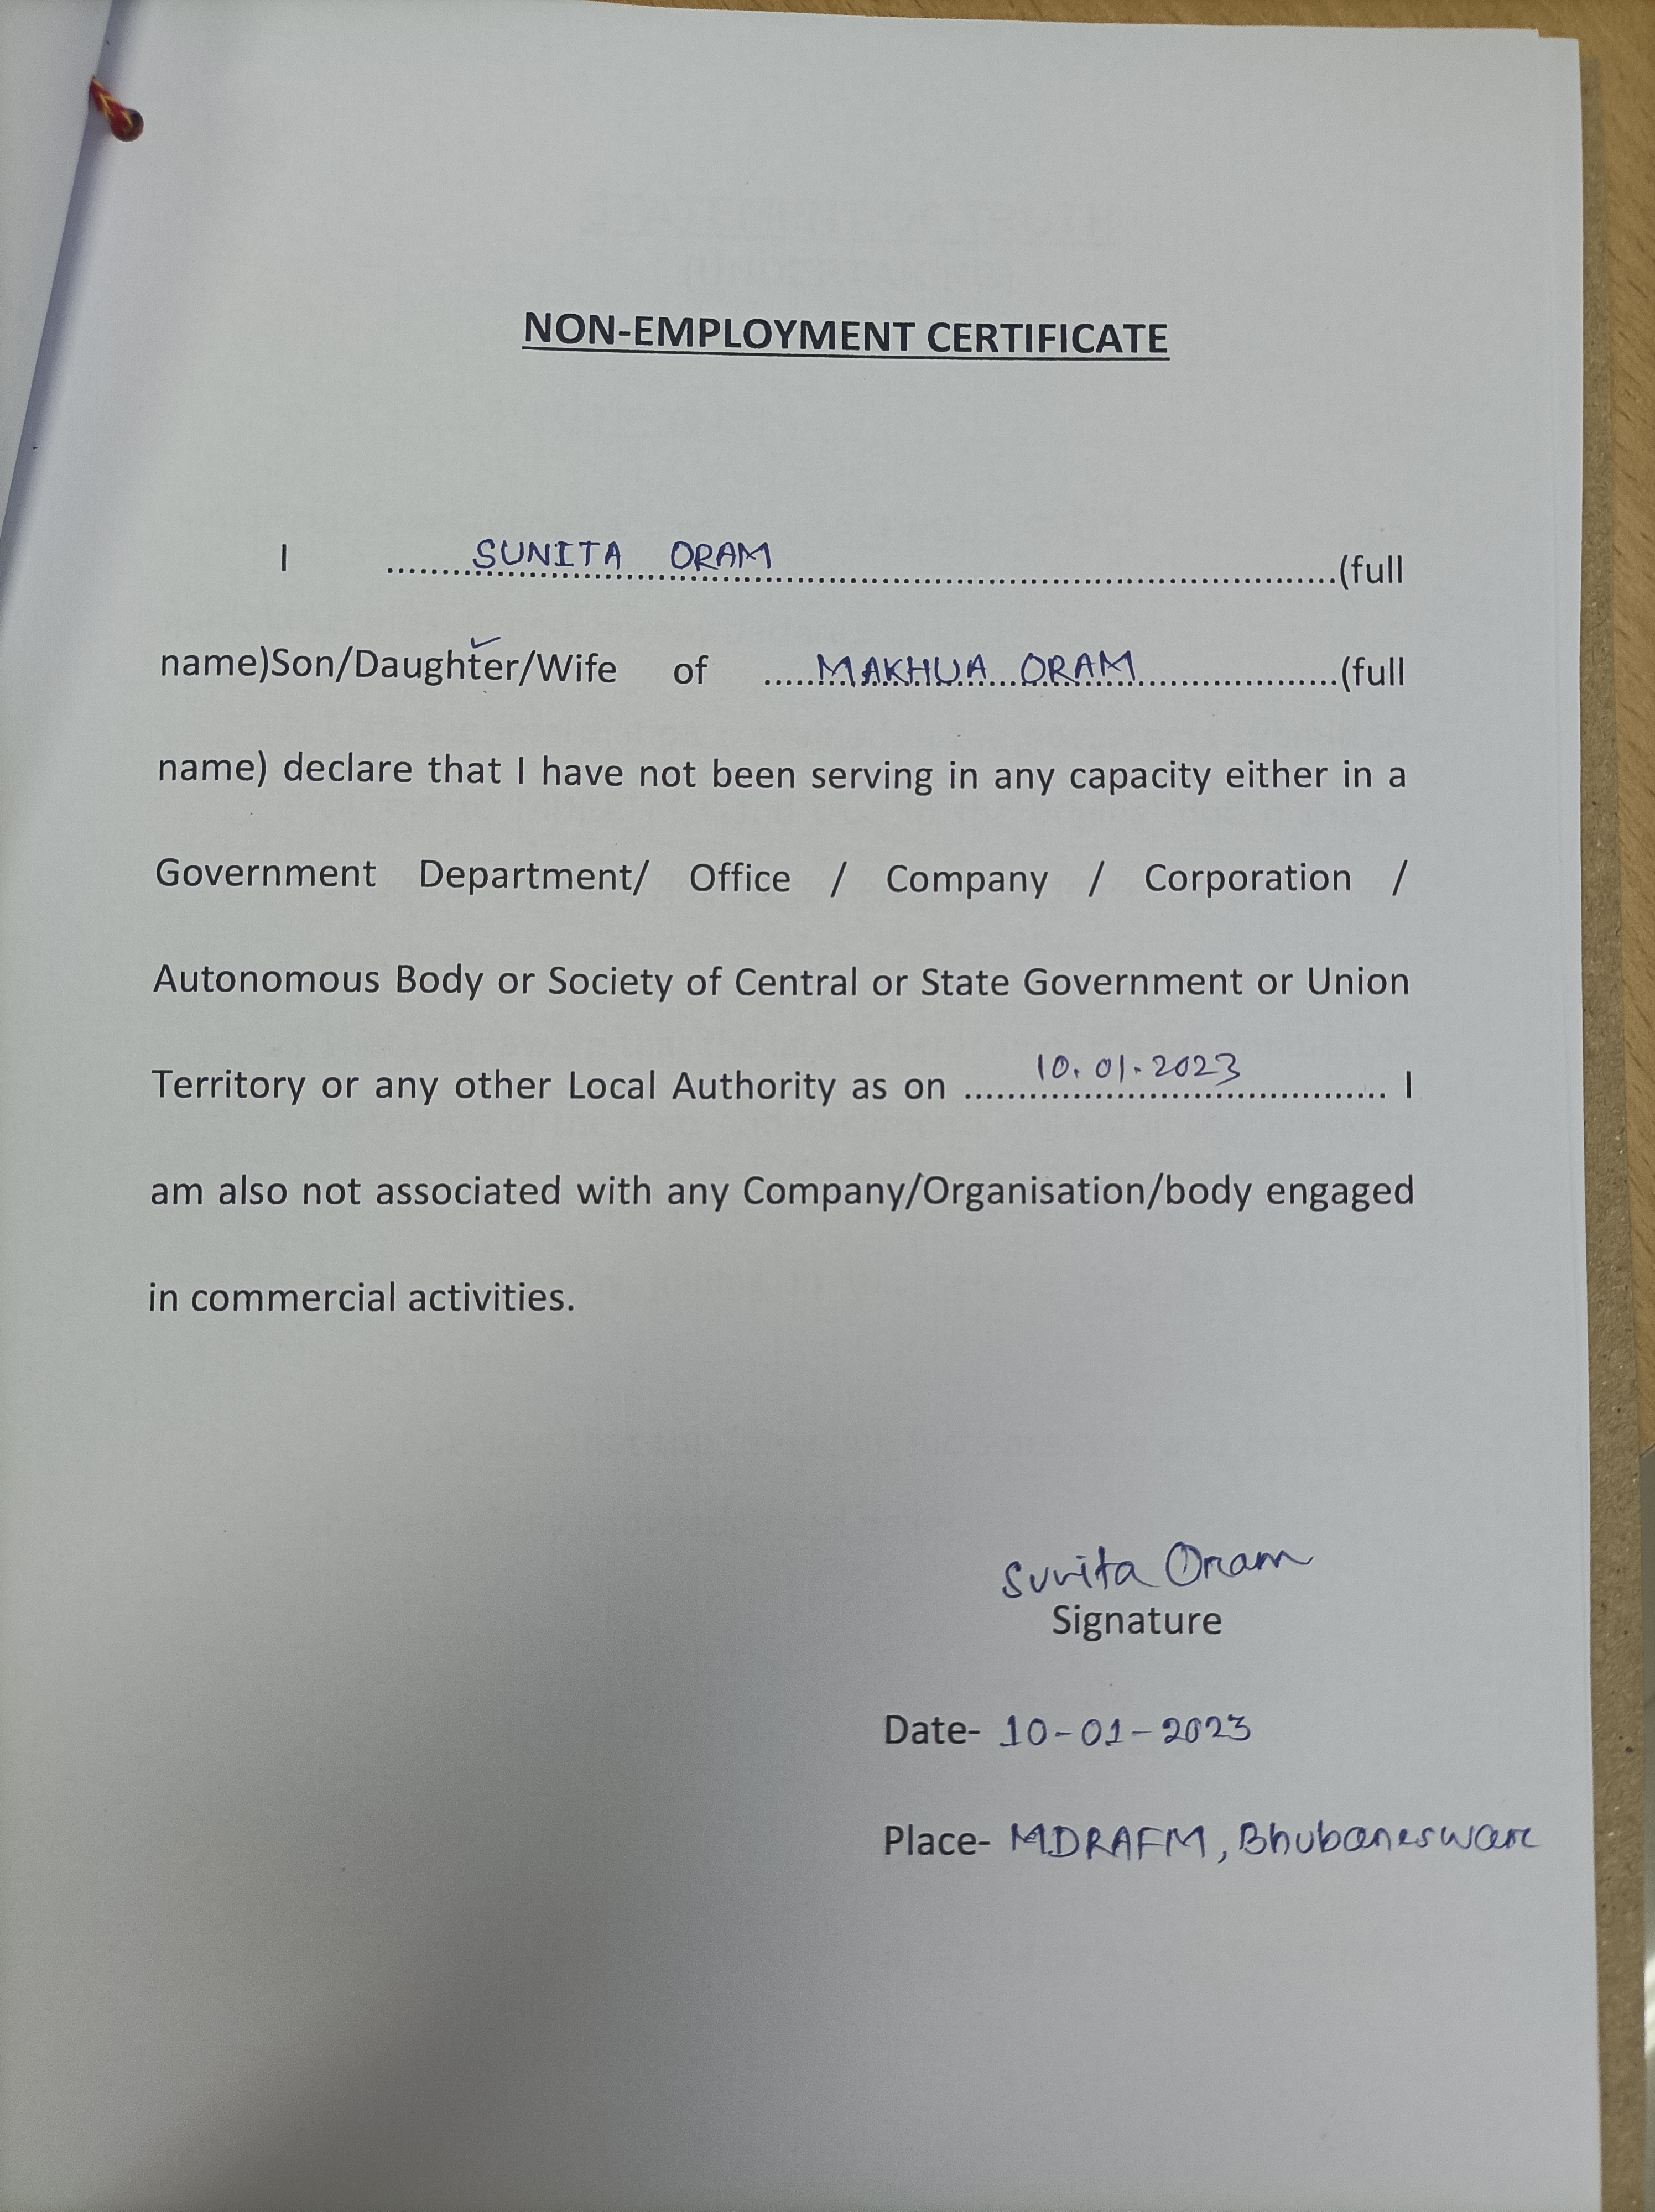 NON-EMPLOYMENT CERTIFICATE
I ..........SUNITA ORAM..........(full
name)Son/Daughter/Wife of .....MAKHUA ORAM..........(full
name) declare that I have not been serving in any capacity either in a
Government Department/ Office / Company / Corporation /
Autonomous Body or Society of Central or State Government or Union
Territory or any other Local Authority as on ......10.01.2023...... I
am also not associated with any Company/Organisation/body engaged
in commercial activities.
Sunita Oram
Signature
Date- 10-01-2023
Place- MDRAFM, Bhubaneswar